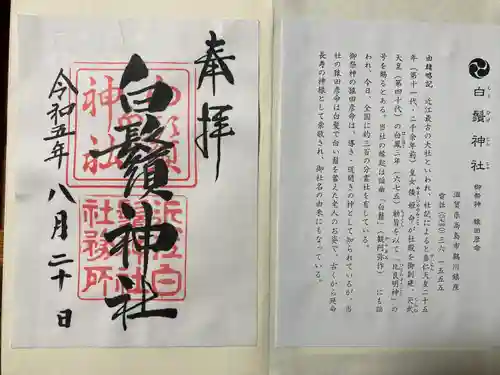 奉拝
白鬚神社
令和五年八月二十日
近江白
社務所
白鬚神社
しらひげじんじゃ
御祭神 猿田彦命
滋賀県高島市鵜川鎮座
電話(〇七四〇)三六-一五五五
由緒略記 近江最古の大社といわれ、社記によると垂仁天皇二十五
年(第十一代、二千余年前)皇女倭姫命が社殿を御創建、天武
天皇(第四十代)の白鳳二年(六七五)勅旨をもって「比良明神」の
号を賜るとある。当社の縁起は謡曲「白鬚」(観阿弥作)にも謡
われ、今日、全国に約三百の分霊社を有している。
御祭神の猿田彦命は、導き・道開きの神として知られているが、当
社の猿田彦命は白髪で白い鬚を蓄えた老人のお姿で、古くから延命
長寿の神様として崇敬され、御社名の由来にもなっている。